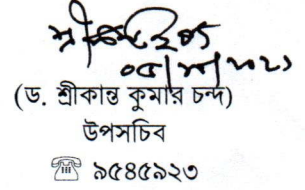 (ড. শ্রীকান্ত কুমার চন্দ)
উপসচিব
☎ ৯৫৪৫৯২৩